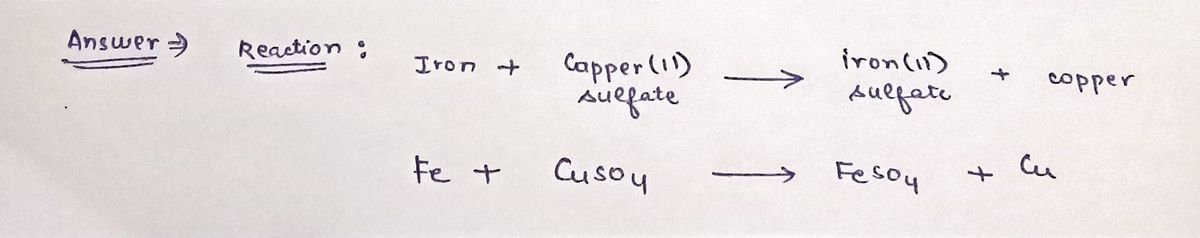 Answer ⇒ Reaction : Iron + Capper(11) sulfate ⟶ iron(11) sulfate + copper
Fe + CuSO4 ⟶ FeSO4 + Cu